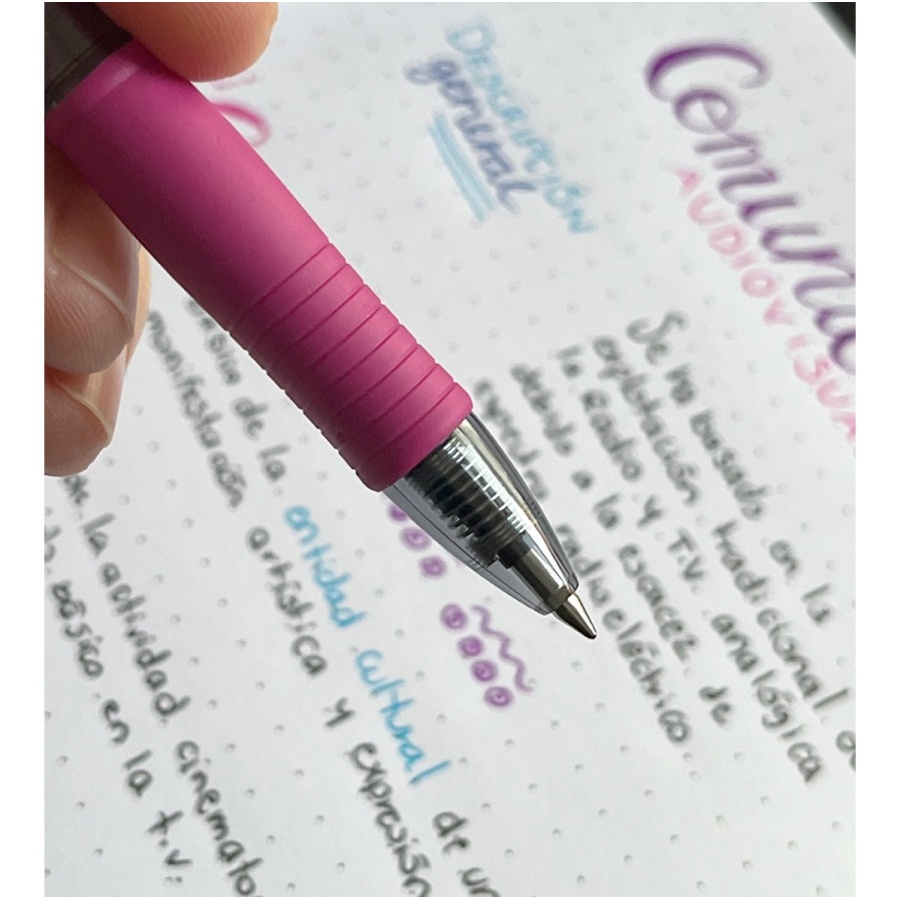 Descripción
general
Comunic
AUDIOVISUA
Se ha basado en la
explotación tradicional
la radio y T.V. analógica
debido a la escacez de
radioeléctrico.
de la entidad cultural de un
manifestación artística y expresión
la actividad cinemato
básico en la t.v.